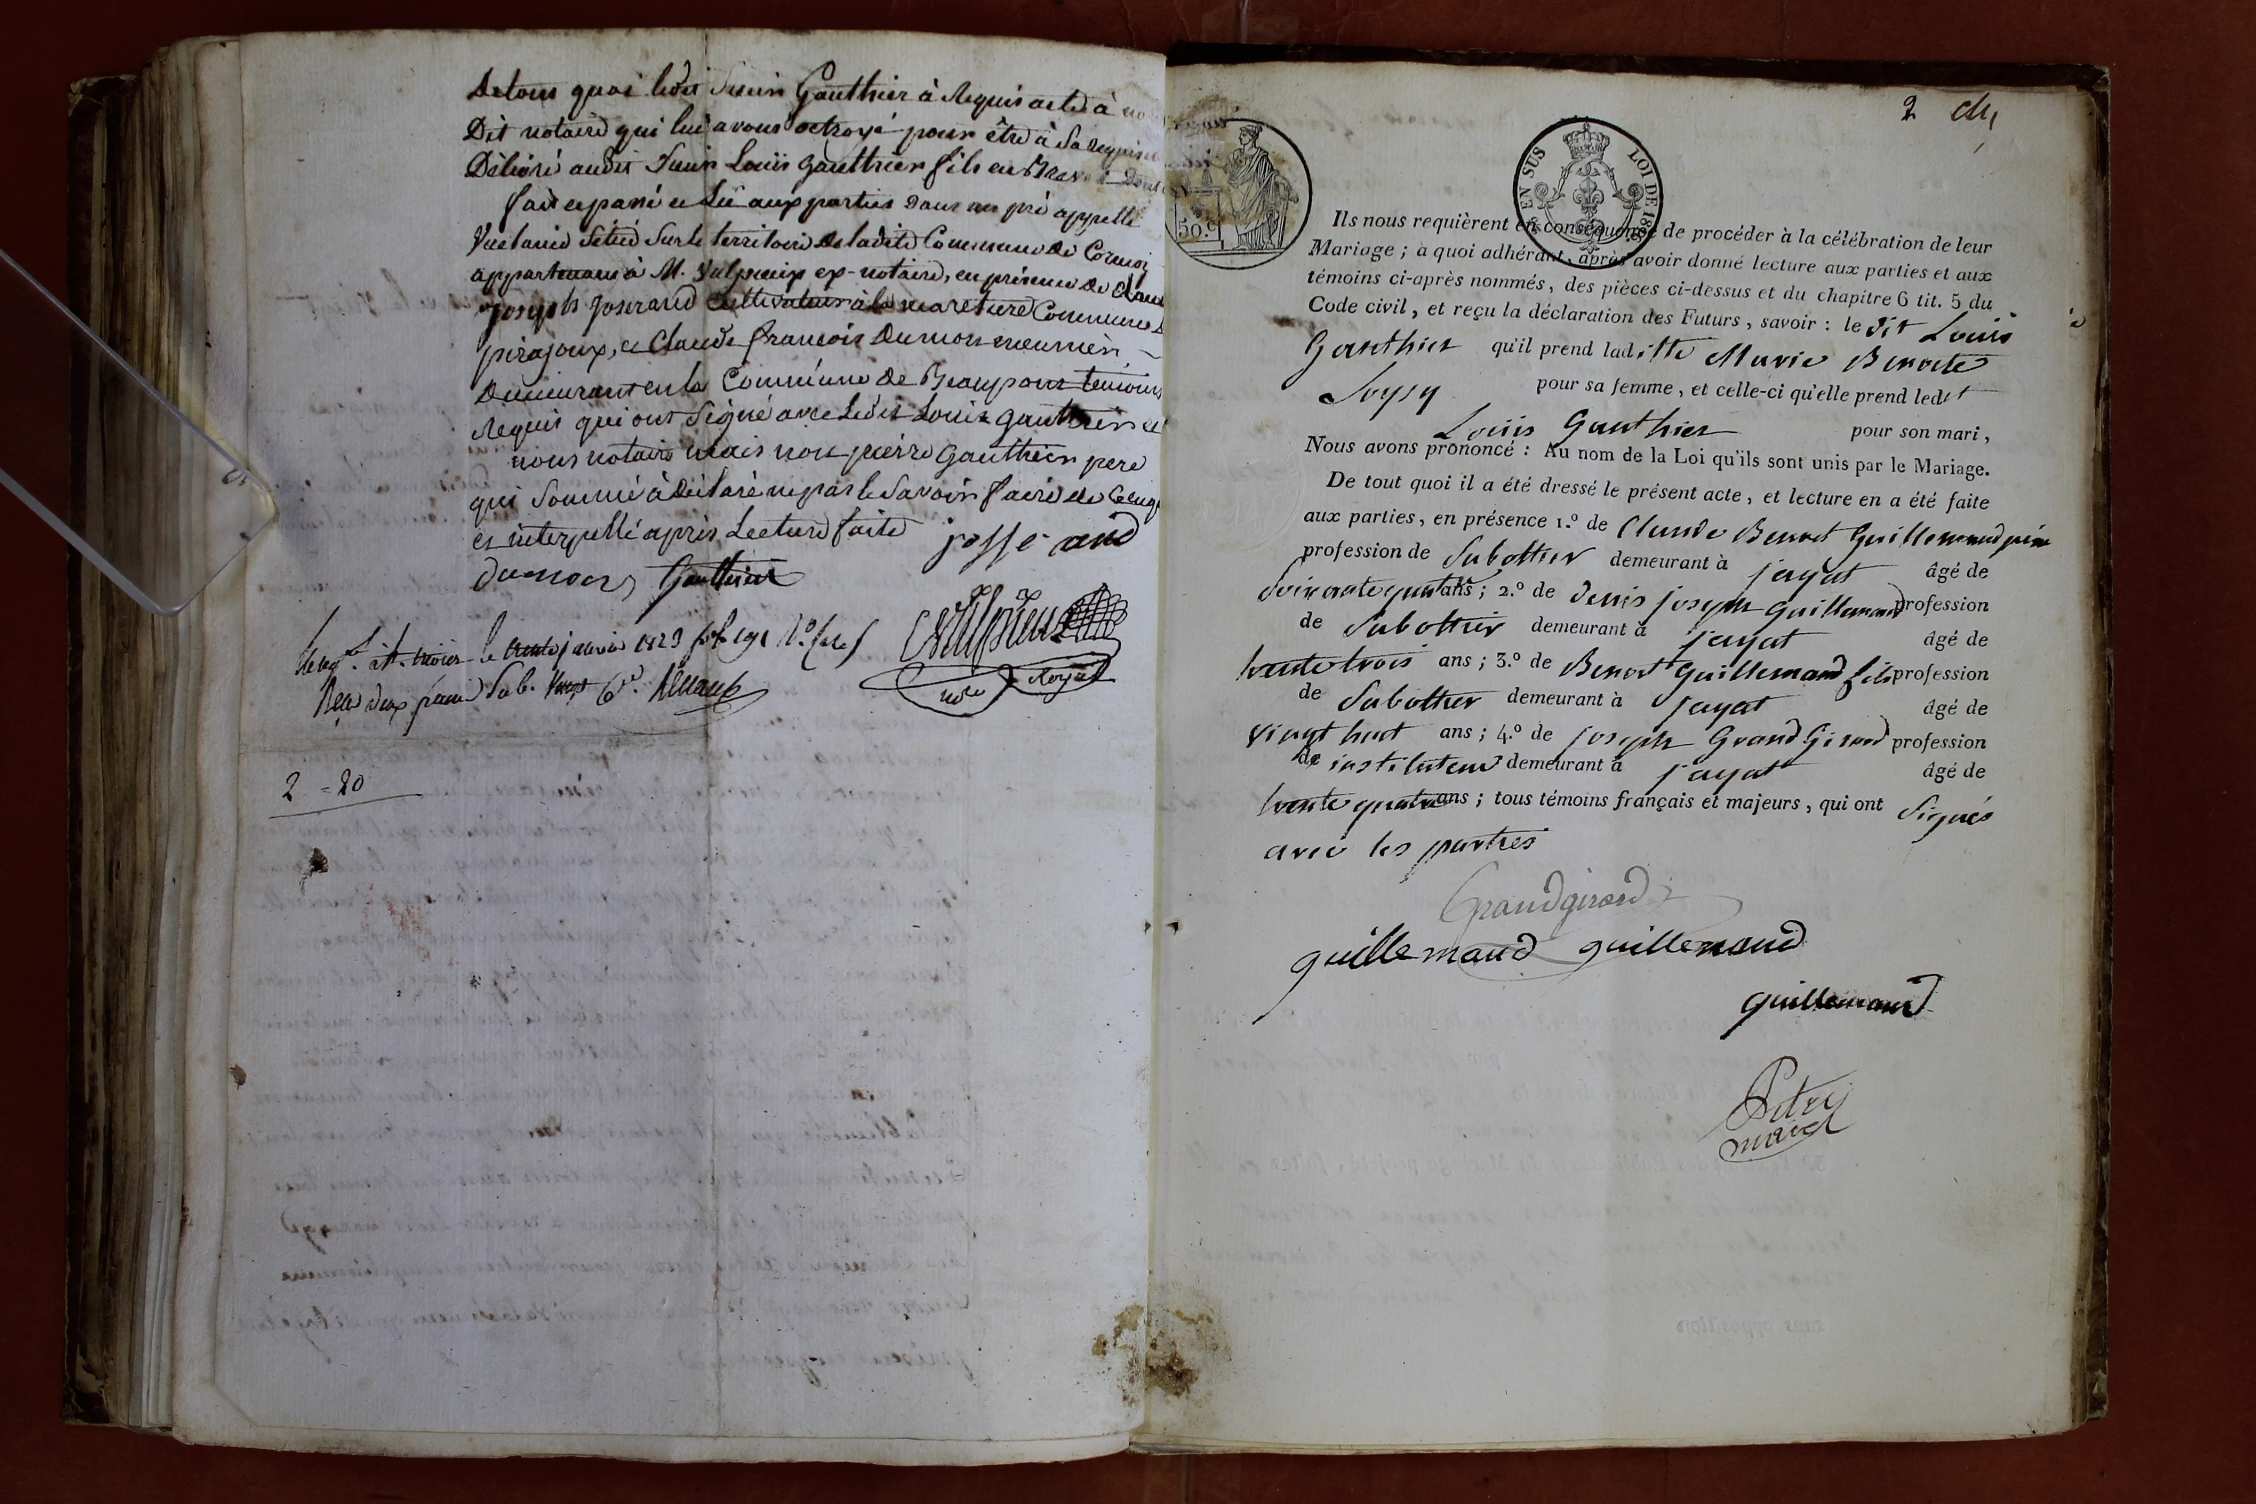 De tout quoi ledit Sieur Gauthier à Requis acte à
Dit notaire qui lui avons octroyé pour être à Sa
Délivré audit Sieur Louis Gauthier fils en Brevet
fait et passé et Lu aux parties dans un pré appellé
Situé Sur le territoire de ladite Commune de Cormoz
appartenant à M. Vulpieux ex-notaire, en présence de
joseph josserand Cultivateur à la Commune
pirajoux, et Claude françois Dumon meunier
Demeurant en la Commune de Beaupont temoins
Requis qui ont Signé avec Ledit Louis Gauthier et
nous notaire mais non pierre Gauthier pere
qui Sommé à Déclaré ne pas le Savoir faire de
et interpellé après Lecture faite
josserand
Gauthier
Vulpieux
nre Royal
le janvier 1823
Reçu deux francs
2 = 20
2
50.c
EN SUS LOI DE
Ils nous requièrent en conséquence de procéder à la célébration de leur
Mariage ; à quoi adhérant, après avoir donné lecture aux parties et aux
témoins ci-après nommés, des pièces ci-dessus et du chapitre 6 tit. 5 du
Code civil, et reçu la déclaration des Futurs, savoir : le dit Louis
Gauthier qu'il prend laditte Marie Benoite
Soysy pour sa femme, et celle-ci qu'elle prend ledit
Louis Gauthier pour son mari,
Nous avons prononcé : Au nom de la Loi qu'ils sont unis par le Mariage.
De tout quoi il a été dressé le présent acte, et lecture en a été faite
aux parties, en présence 1.º de Claude Benoit Guillemaud père
profession de Sabottier demeurant à jayat âgé de
Soixante ans ; 2.º de Denis joseph Guillemaud profession
de Sabottier demeurant à jayat âgé de
trente trois ans ; 3.º de Benoit Guillemaud fils profession
de Sabottier demeurant à jayat âgé de
vingt huit ans ; 4.º de joseph Grand Girard profession
de instituteur demeurant à jayat âgé de
trente quatre ans ; tous témoins français et majeurs, qui ont Signés
avec les parties
Grandgirard
guillemaud guillemaud
guillemaud